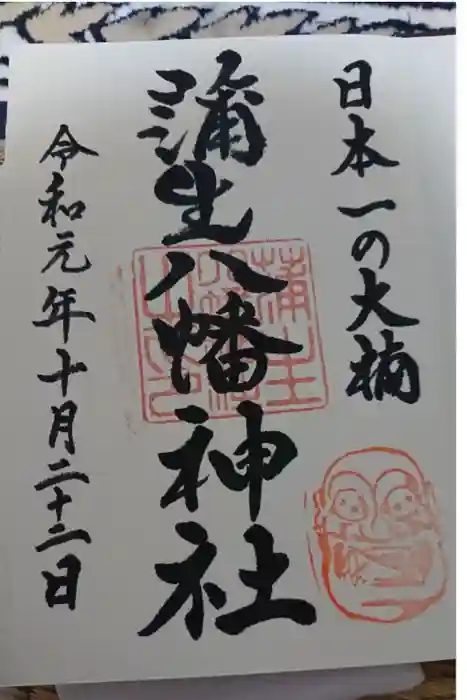 日本一の大楠
蒲生八幡神社
令和元年十月二十二日
蒲生
之印